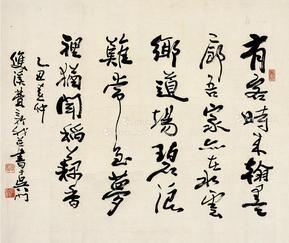 有客時來翰墨
廊吾家亦在水雲
鄉道場碧浪
難常到夢
裡猶聞稻藕香
乙丑仲
雙溪費新我左書吳門